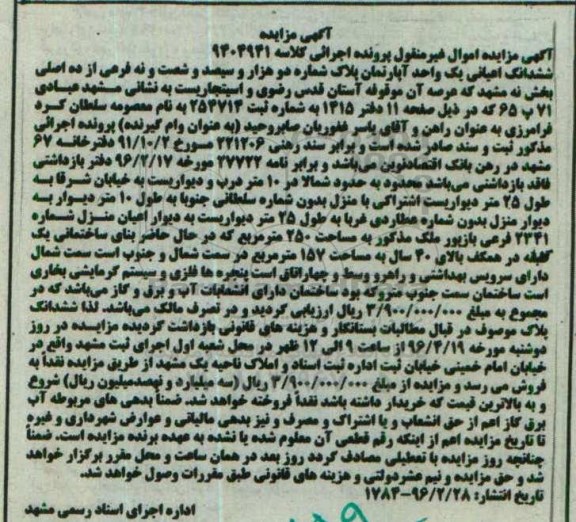 آگهی مزایده
آگهی مزایده اموال غیرمنقول پرونده اجرائی کلاسه ۹۴۰۴۹۴۱
ششدانگ اعیانی یک واحد آپارتمان پلاک شماره دو هزار و سیصد و شصت و نه فرعی از ده اصلی
بخش نه مشهد که عرصه آن موقوفه آستان قدس رضوی و استیجاریست به نشانی مشهد عبادی
۷۱ پ ۶۵ که در ذیل صفحه ۱۱ دفتر ۱۴۱۵ به شماره ثبت ۲۵۴۷۱۴ به نام معصومه سلطان کرد
فرامرزی به عنوان راهن و آقای یاسر غفوریان صابروحید (به عنوان وام گیرنده) پرونده اجرائی
مذکور ثبت و سند صادر شده است و برابر سند رهنی ۲۲۱۲۰۶ مورخ ۹۱/۱۰/۲ دفترخانه ۶۷
مشهد در رهن بانک اقتصادنوین می‌باشد و برابر نامه ۲۷۷۲۲ مورخه ۹۶/۲/۱۷ دفتر بازداشتی
فاقد بازداشتی می‌باشد محدود به حدود شمالا در ۱۰ متر درب و دیواریست به خیابان شرقا به
طول ۲۵ متر دیواریست اشتراکی با منزل بدون شماره سلطانی جنوبا به طول ۱۰ متر دیوار به
دیوار منزل بدون شماره عطاردی غربا به طول ۲۵ متر دیواریست به دیوار اعیان منزل شماره
۲۳۴۱ فرعی بازپور ملک مذکور به مساحت ۲۵۰ مترمربع که در حال حاضر بنای ساختمانی یک
طبقه در همکف بالای ۴۰ سال به مساحت ۱۵۷ مترمربع در سمت شمال و جنوب است سمت شمال
دارای سرویس بهداشتی و راهرو وسط و چهاراتاق است پنجره ها فلزی و سیستم گرمایشی بخاری
است ساختمان سمت جنوب متروکه بود ساختمان دارای انشعابات آب و برق و گاز می‌باشد که در
مجموع به مبلغ ۳/۹۰۰/۰۰۰/۰۰۰ ریال ارزیابی گردید و در تصرف مالک می‌باشد. لذا ششدانگ
پلاک موصوف در قبال مطالبات بستانکار و هزینه های قانونی بازداشت گردیده مزایده در روز
دوشنبه مورخه ۹۶/۴/۱۹ از ساعت ۹ الی ۱۲ ظهر در محل شعبه اول اجرای ثبت مشهد واقع در
خیابان امام خمینی خیابان ثبت اداره ثبت اسناد و املاک ناحیه یک مشهد از طریق مزایده نقداً به
فروش می رسد و مزایده از مبلغ ۳/۹۰۰/۰۰۰/۰۰۰ ریال (سه میلیارد و نهصدمیلیون ریال) شروع
و به بالاترین قیمت که خریدار داشته باشد نقداً فروخته خواهد شد. ضمناً بدهی های مربوطه آب
برق گاز اعم از حق انشعاب و یا اشتراک و مصرف و نیز بدهی مالیاتی و عوارض شهرداری و غیره
تا تاریخ مزایده اعم از اینکه رقم قطعی آن معلوم شده یا نشده به عهده برنده مزایده است. ضمناً
چنانچه روز مزایده با تعطیلی مصادف گردد روز بعد در همان ساعت و محل مقرر برگزار خواهد
شد و حق مزایده و نیم عشردولتی و هزینه های قانونی طبق مقررات وصول خواهد شد.
تاریخ انتشار: ۹۶/۲/۲۸-۱۷۸۴
اداره اجرای اسناد رسمی مشهد